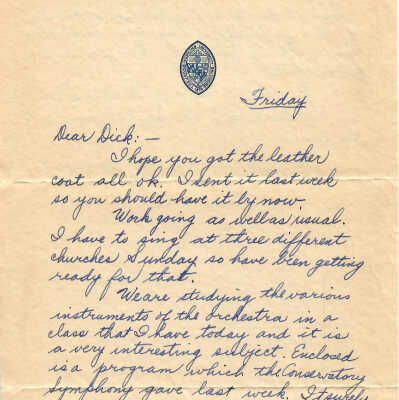 Friday
Dear Dick:—
I hope you got the leather
coat all ok. I sent it last week
so you should have it by now.
Work going as well as usual.
I have to sing at three different
churches Sunday so have been getting
ready for that.
We are studying the various
instruments of the orchestra in a
class that I have today and it is
a very interesting subject. Enclosed
is a program which the Conservatory
Symphony gave last week. It surely